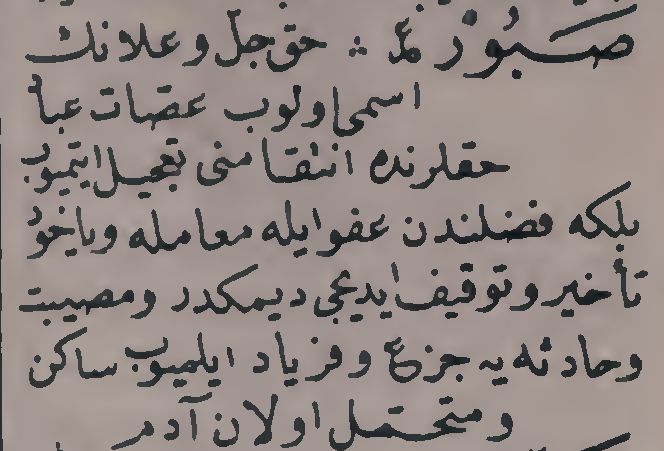 صَبُوْرْ ع ؞ حق جل وعلانك
اسمى اولوب عصات عباد
حقلرنده انتقامنى تعجيل ايتميوب
بلكه فضلندن عفو ايله معامله وياخود
تأخير وتوقيف ايديجى ديمكدر ومصيبت
وحادثه يه جزع وفرياد ايلميوب ساكن
ومتحمل اولان آدم